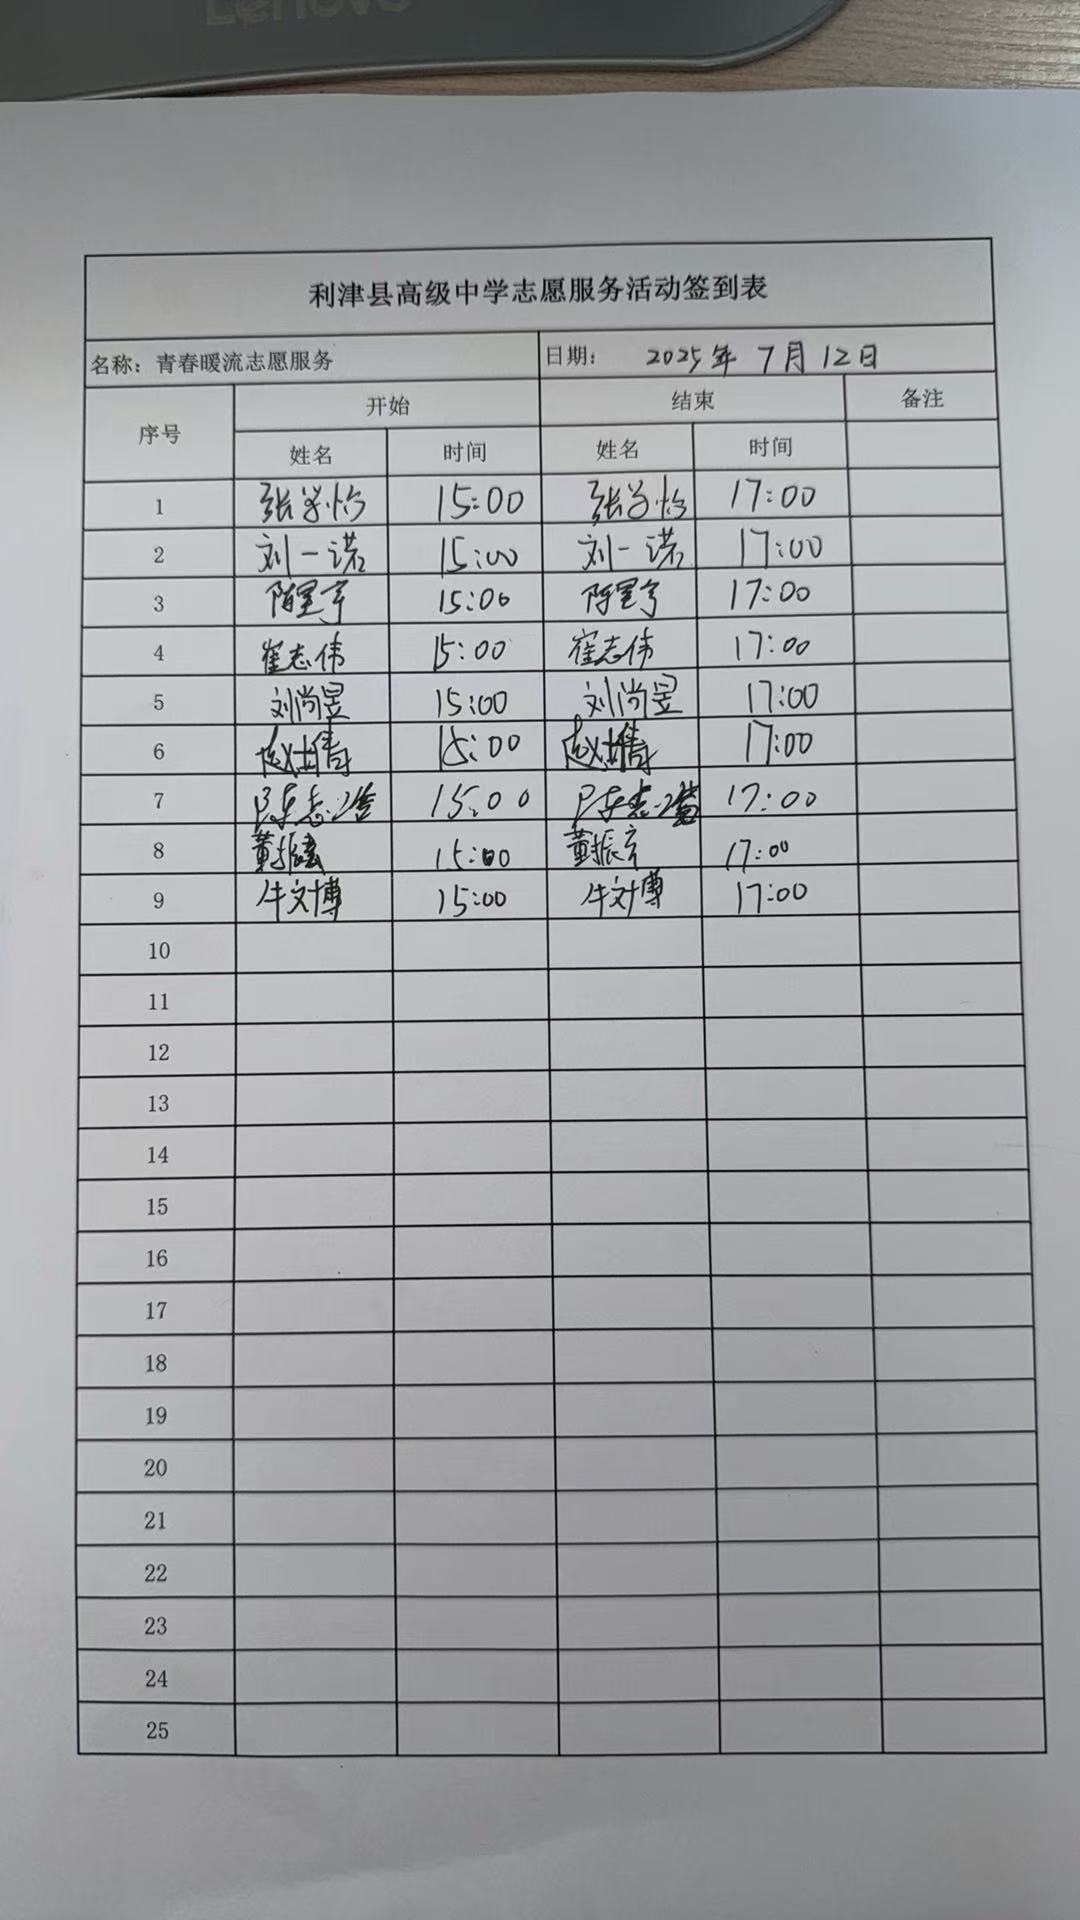 Lenovo
利津县高级中学志愿服务活动签到表
名称：青春暖流志愿服务 日期： 2025年 7月 12日
序号 开始 结束 备注
姓名 时间 姓名 时间
1 张学怡 15:00 张学怡 17:00
2 刘一诺 15:00 刘一诺 17:00
3 15:00 17:00
4 崔志伟 15:00 崔志伟 17:00
5 刘尚昱 15:00 刘尚昱 17:00
6 15:00 17:00
7 15:00 17:00
8 15:00 17:00
9 牛文博 15:00 牛文博 17:00
10
11
12
13
14
15
16
17
18
19
20
21
22
23
24
25